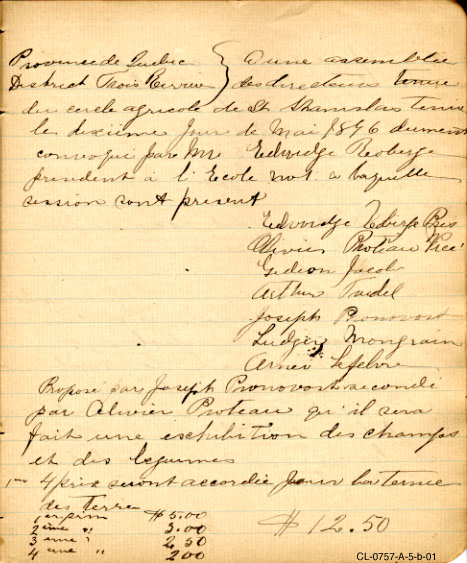 Province de Quebec } A une assemblée
District Trois Rivier } des directeurs tenue
du cercle agricole de St Stanislas tenue
le dixieme jour de Mai 1896 dument
convoqué par Mr Edvidge Roberge
president à l'Ecole no 1. a laquelle
session sont present
Edvvidge Roberge Pres
Olivier Proteau Vice
Gideon Jacob
Arthur Trudel
Joseph Pronovost
Ludger Mongrain
Lefebvre
Proposé par Joseph Pronovost secondé
par Olivier Proteau qu'il sera
fait une exhibition des champs
et des legumes
4 prix seront accordée pour la tenue
des terre
1er prim $5.00
2eme " 3.00
3eme " 2.50
4eme " 200
$12.50
CL-0757-A-5-b-01